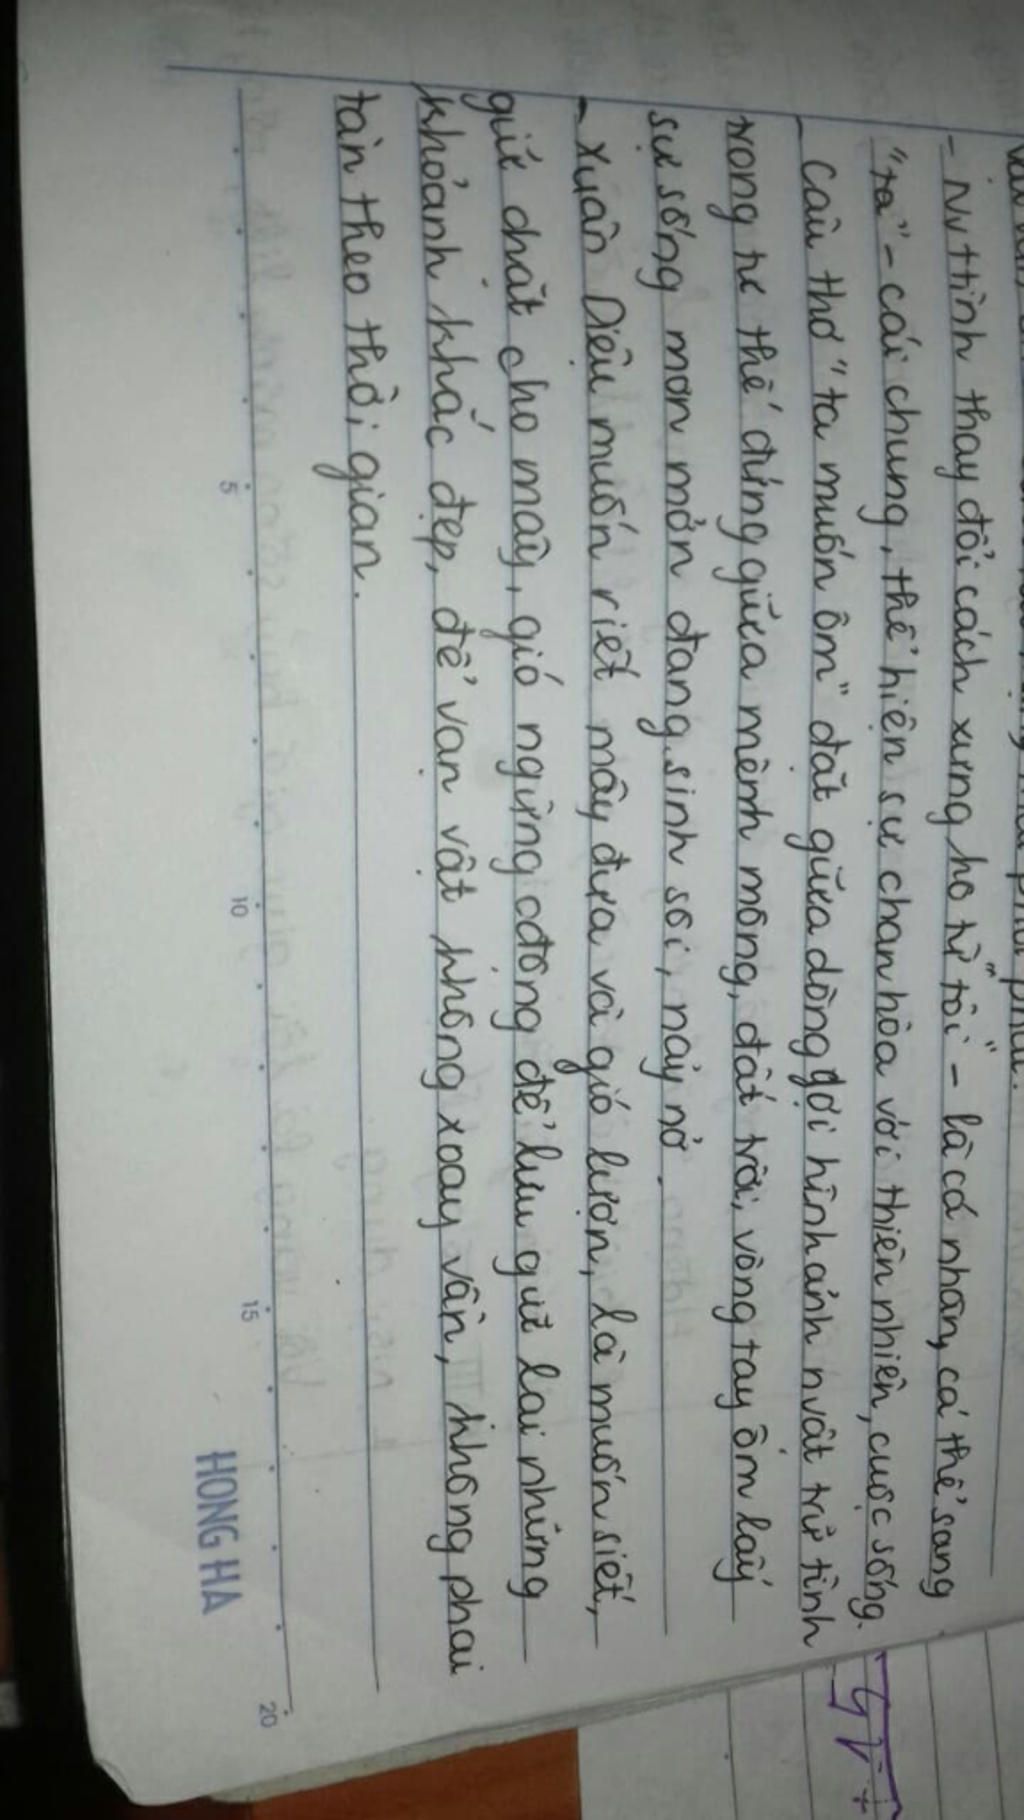 - Nv tình thay đổi cách xưng hô từ "tôi" - là cá nhân, cá thể sang
"ta" - cái chung, thể hiện sự chan hòa với thiên nhiên, cuộc sống.
- Câu thơ "ta muốn ôm" đặt giữa dòng gợi hình ảnh nvật trữ tình
trong tư thế đứng giữa mênh mông, đất trời, vòng tay ôm lấy
sự sống mơn mởn đang sinh sôi, nảy nở.
- Xuân Diệu muốn riết mây đưa và gió lượn, là muốn siết,
giữ chặt cho mây, gió ngừng cđộng để lưu giữ lại những
khoảnh khắc đẹp, để vạn vật không xoay vần, không phai
tàn theo thời gian.
5 10 15 20
HONG HA